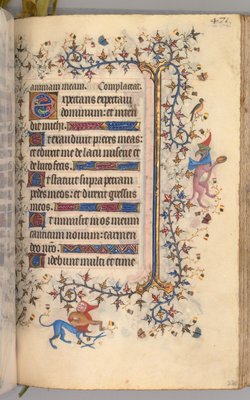 animam meam. Complaceat.
Expectans expectaui
dominum: et inten
dit michi.
Et exaudiuit preces meas:
et eduxit me de lacu miserie et
de luto fecis.
Et statuit supra petram
pedes meos: et direxit gressus
meos.
Et inmisit in os meum
canticum nouum: carmen
deo nro.
Uidebunt multi et time